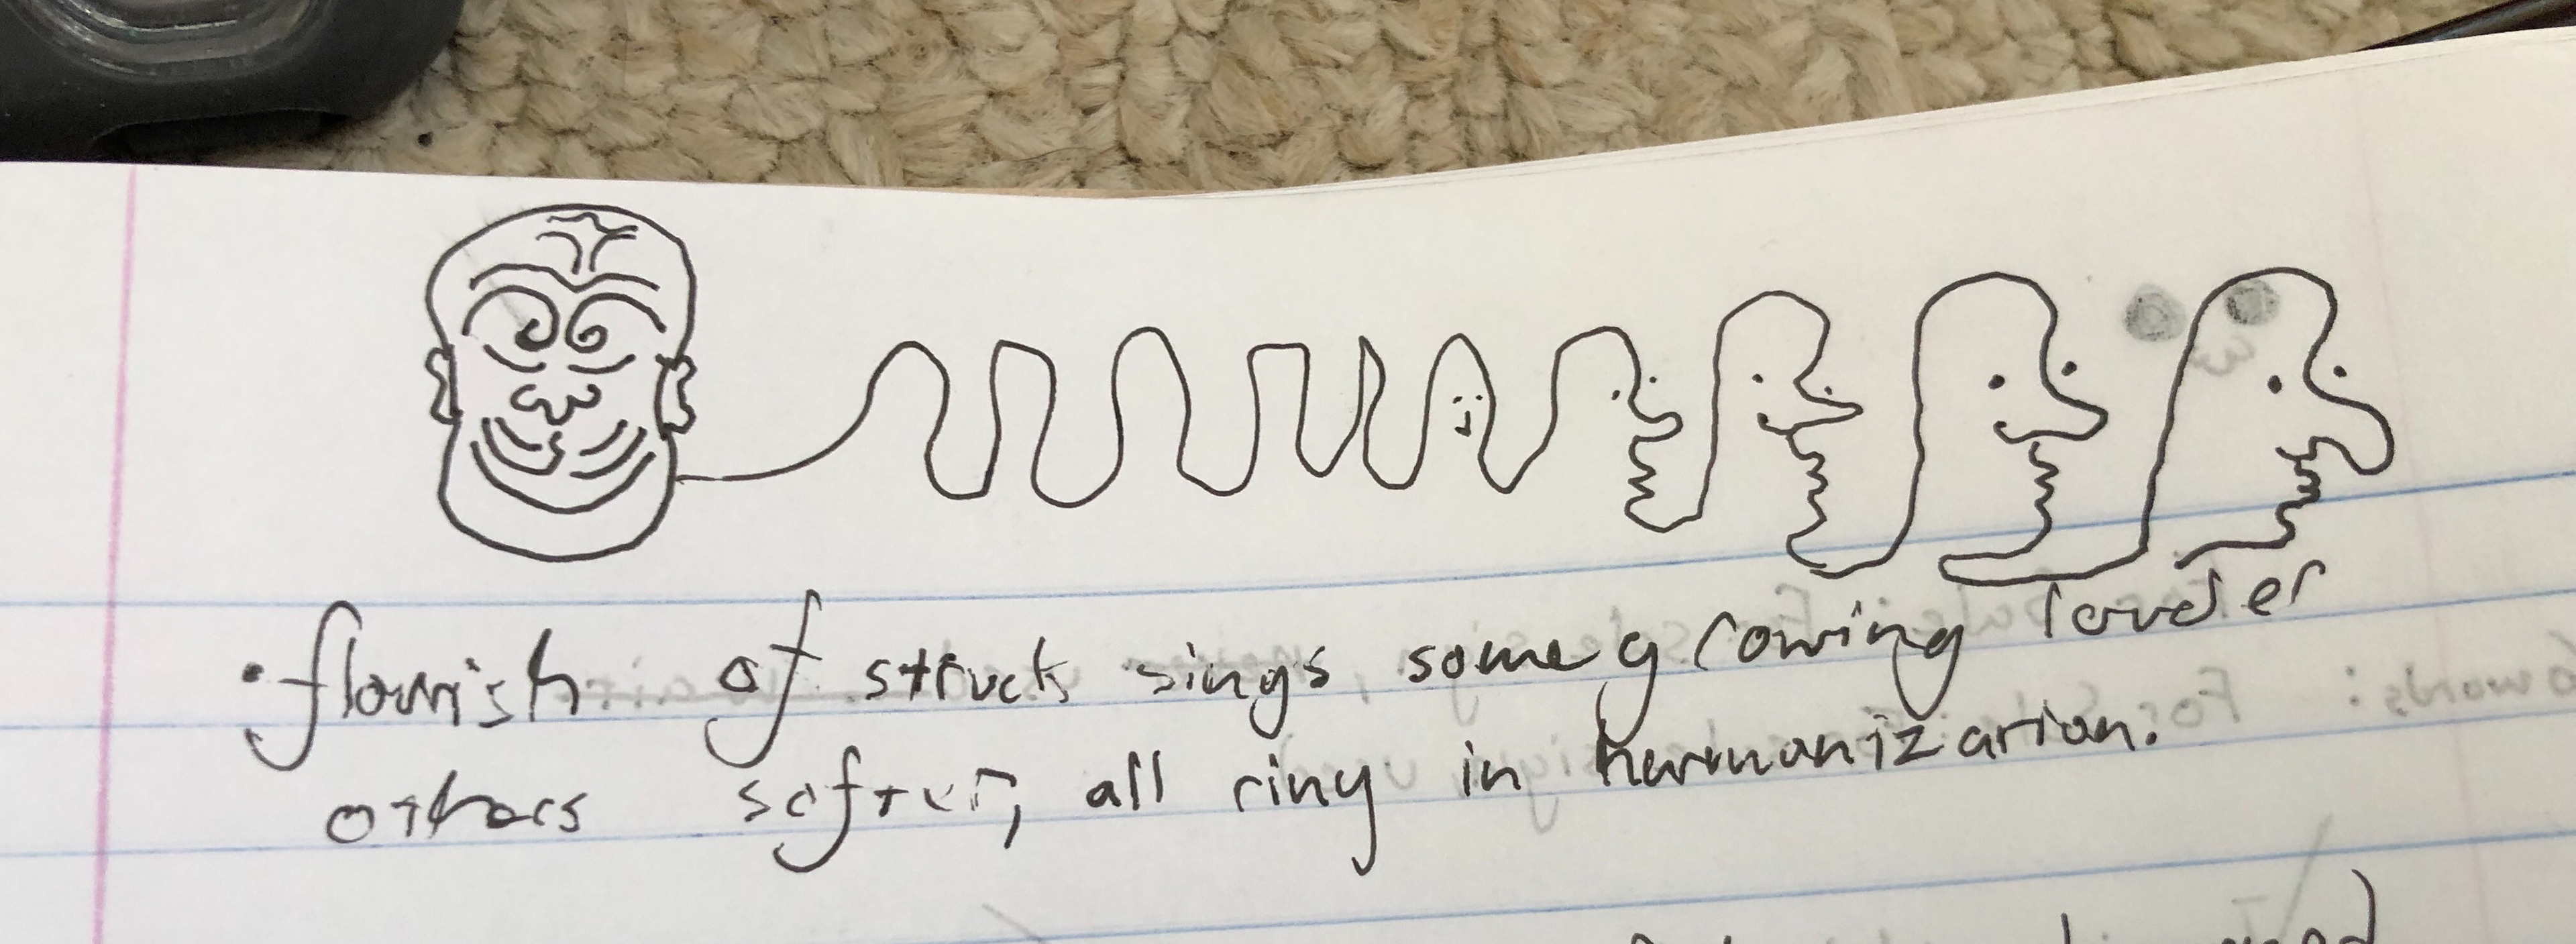 • flourish of struck sings some growing louder
others softer, all ring in harmonization.